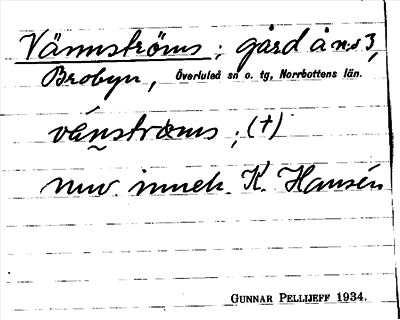 Vännströms ; gård å nr 3,
Brobyn, Överluleå sn o. tg, Norrbottens län.
vä́n̮stroms ; (+)
nuv. inneh. K. Hansén
GUNNAR PELLIJEFF 1934.